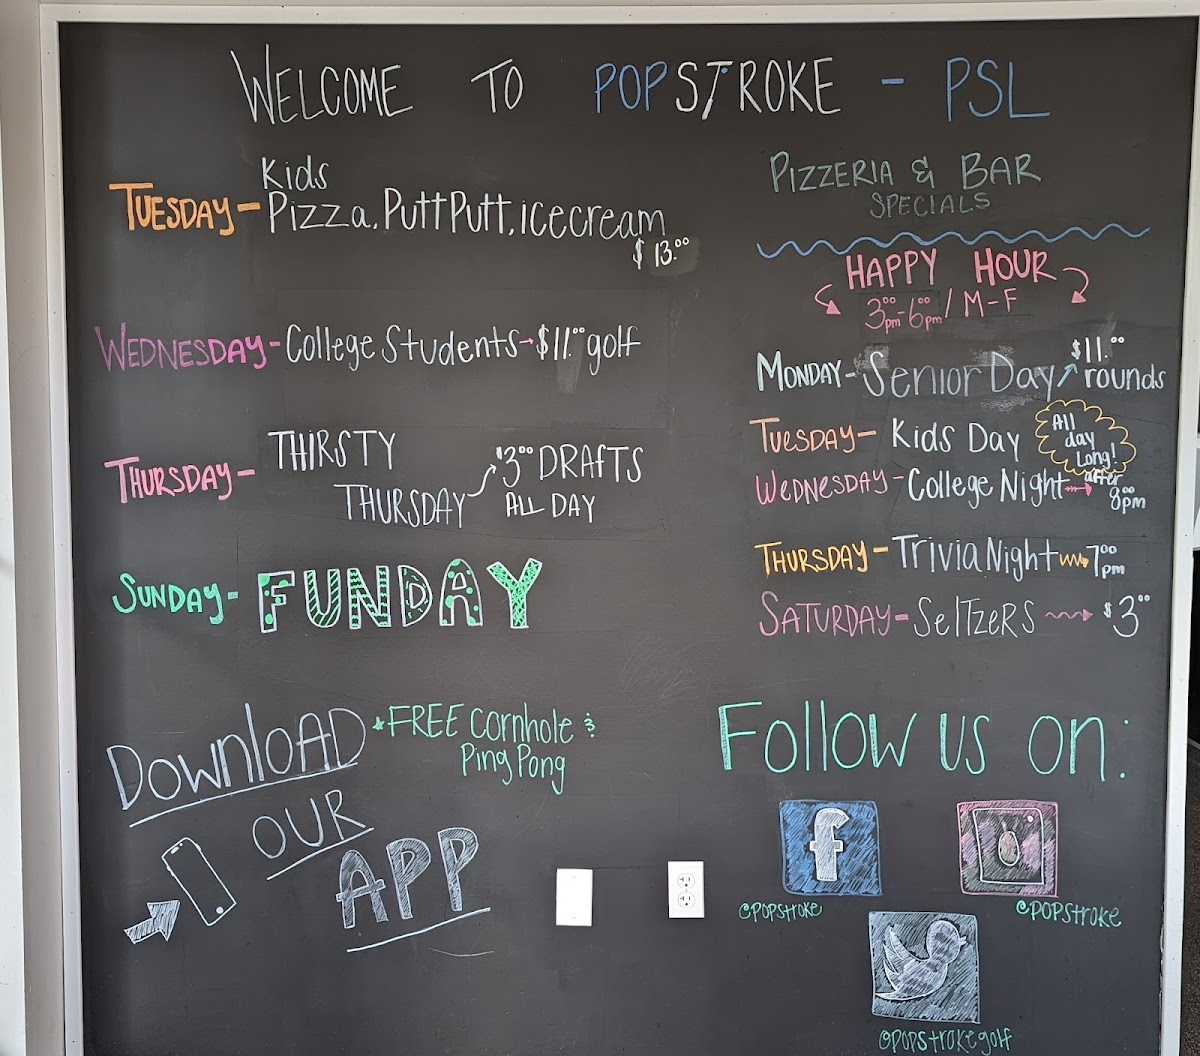 WELCOME TO POPSTROKE - PSL
TUESDAY - Kids
Pizza, Putt Putt, ice cream
$13.00
WEDNESDAY - College Students → $11.00 golf
THURSDAY - THIRSTY
THURSDAY $3.00 DRAFTS
ALL DAY
SUNDAY - FUNDAY
DOWNLOAD
OUR
APP
FREE Cornhole &
Ping Pong
PIZZERIA & BAR
SPECIALS
HAPPY HOUR
3:00pm-6:00pm / M-F
MONDAY - Senior Day $11.00
rounds
TUESDAY - Kids Day All
day
Long!
WEDNESDAY - College Night → after
8:00pm
THURSDAY - Trivia Night 7:00
pm
SATURDAY - SelTzERS → $3.00
Follow us on:
f
@POPSTROKE
@POPSTROKE
@POPSTROKEgolf